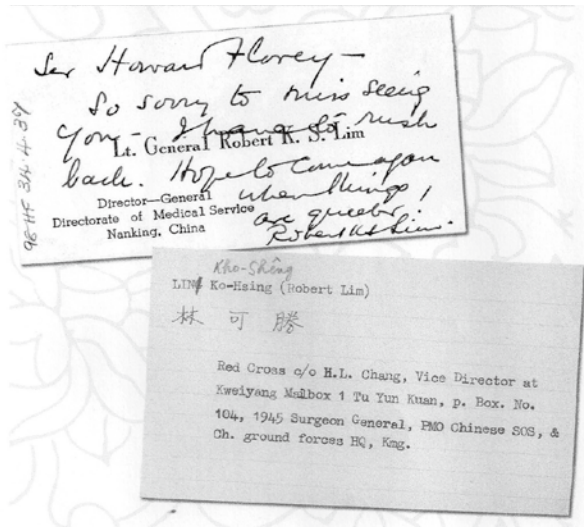 Sir Howard Florey —
So sorry to miss seeing
you — I have to rush
Lt. General Robert K. S. Lim
back. Hope to come again
when things
are quieter!
Robert KS Lim.
Director—General
Directorate of Medical Service
Nanking, China
98 HF 34.4.39
Kho-Shêng
LIN Ko-Hsing (Robert Lim)
林 可 勝
Red Cross c/o H.L. Chang, Vice Director at
Kweiyang Mailbox 1 Tu Yun Kuan, p. Box. No.
104, 1945 Surgeon General, PMO Chinese SOS, &
Ch. ground forces HQ, Kmg.